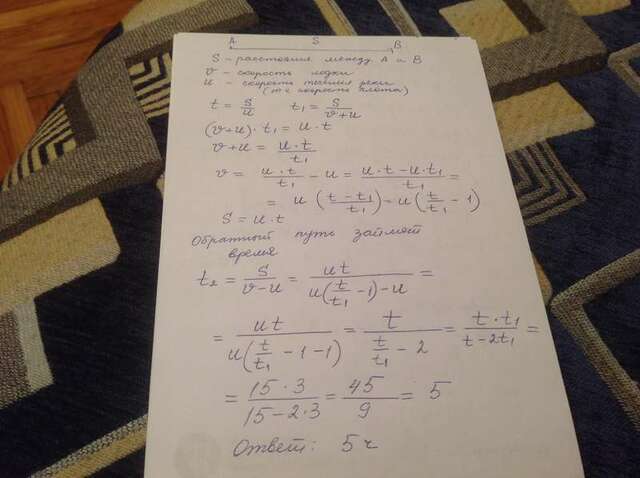 A S B
S - расстояние между A и B
v - скорость лодки
u - скорость течения реки
(т е скорость плота)
t = S/u t₁ = S/(v+u)
(v+u)·t₁ = u·t
v+u = u·t/t₁
v = u·t/t₁ - u = (u·t-u·t₁)/t₁ =
= u((t-t₁)/t₁) = u(t/t₁ - 1)
S = u·t
Обратный путь займет
время
t₂ = S/(v-u) = ut/(u(t/t₁ - 1) - u) =
= ut/(u(t/t₁ - 1 - 1)) = t/(t/t₁ - 2) = t·t₁/(t-2t₁) =
= 15·3/(15-2·3) = 45/9 = 5
Ответ: 5 ч